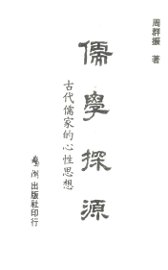 周群振 著
儒學探源
古代儒家的心性思想
鵝湖出版社印行